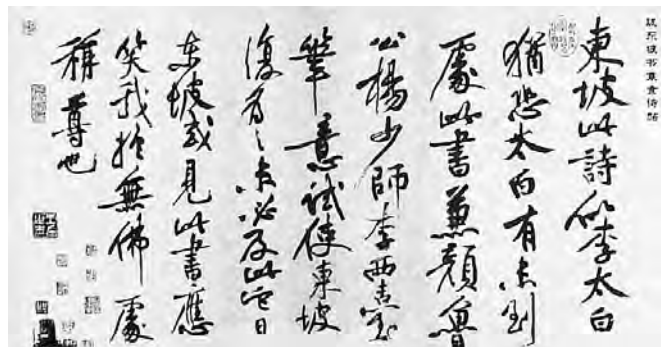 跋东坡书寒食诗帖
東坡此詩似李太白
猶恐太白有未到
處此書兼顏魯
公楊少師李西臺
筆意試使東坡
復為之未必及此它日
東坡或見此書應
笑我於無佛處
稱尊也